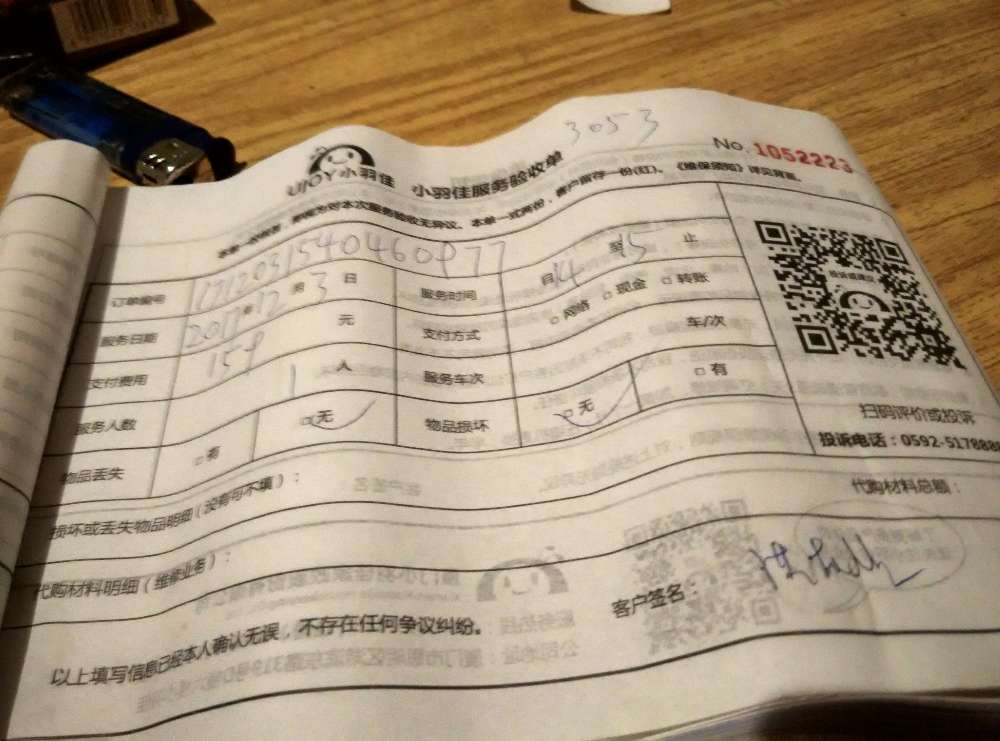 3053
No. 1052223
UJOY小羽佳 小羽佳服务验收单
本单一经签署，即视为对本次服务验收无异议。本单一式两份，客户留存一份(红)。《维保须知》详见背面。
订单编号 171203154046097 服务时间 14 至 15 止
服务日期 2017年12月3日 支付方式 □网络 □现金 □转账
支付费用 159 元 服务车次 车/次
服务人数 1 人 物品损坏 □无 □有
物品丢失 □有 □无
损坏或丢失物品明细（没有可不填）：
代购材料明细（维修业务）： 代购材料总额：
以上填写信息已经本人确认无误，不存在任何争议纠纷。 客户签名：
投诉或建议
扫码评价或投诉
投诉电话：0592-517888